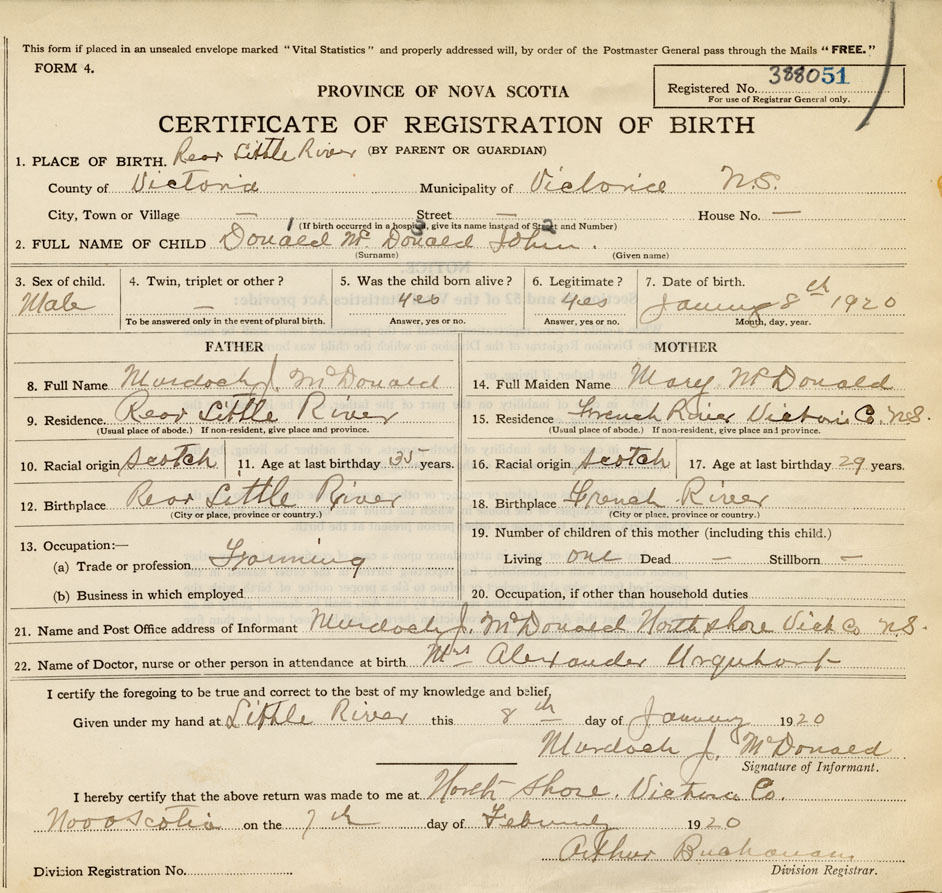 This form if placed in an unsealed envelope marked "Vital Statistics" and properly addressed will, by order of the Postmaster General pass through the Mails "FREE."
FORM 4.
Registered No. 388051
For use of Registrar General only.
PROVINCE OF NOVA SCOTIA
CERTIFICATE OF REGISTRATION OF BIRTH
(BY PARENT OR GUARDIAN)
1. PLACE OF BIRTH. Rear Little River
County of Victoria Municipality of Victoria N.S.
City, Town or Village — Street — House No. —
(If birth occurred in a hospital, give its name instead of Street and Number)
1 3 2
2. FULL NAME OF CHILD Donald Mc Donald John.
(Surname) (Given name)
3. Sex of child. 4. Twin, triplet or other? 5. Was the child born alive? 6. Legitimate? 7. Date of birth.
Male — yes yes January 8th 1920
To be answered only in the event of plural birth. Answer, yes or no. Answer, yes or no. Month, day, year.
FATHER
8. Full Name Murdoch J. McDonald
9. Residence. Rear Little River
(Usual place of abode.) If non-resident, give place and province.
10. Racial origin Scotch 11. Age at last birthday 35 years.
12. Birthplace Rear Little River
(City or place, province or country.)
13. Occupation:—
(a) Trade or profession Farming
(b) Business in which employed
MOTHER
14. Full Maiden Name Mary McDonald
15. Residence French River Victoria Co. N.S.
(Usual place of abode.) If non-resident, give place and province.
16. Racial origin Scotch 17. Age at last birthday 29 years.
18. Birthplace French River
(City or place, province or country.)
19. Number of children of this mother (including this child.)
Living one Dead — Stillborn —
20. Occupation, if other than household duties
21. Name and Post Office address of Informant Murdoch J. McDonald North shore Vict Co N.S.
22. Name of Doctor, nurse or other person in attendance at birth Mrs Alexander Urquhart
I certify the foregoing to be true and correct to the best of my knowledge and belief,
Given under my hand at Little River this 8th day of January 1920
Murdoch J. McDonald
Signature of Informant.
I hereby certify that the above return was made to me at North Shore. Victoria Co.
Nova Scotia on the 7th day of February 1920
Arthur Buchanan
Division Registration No. Division Registrar.